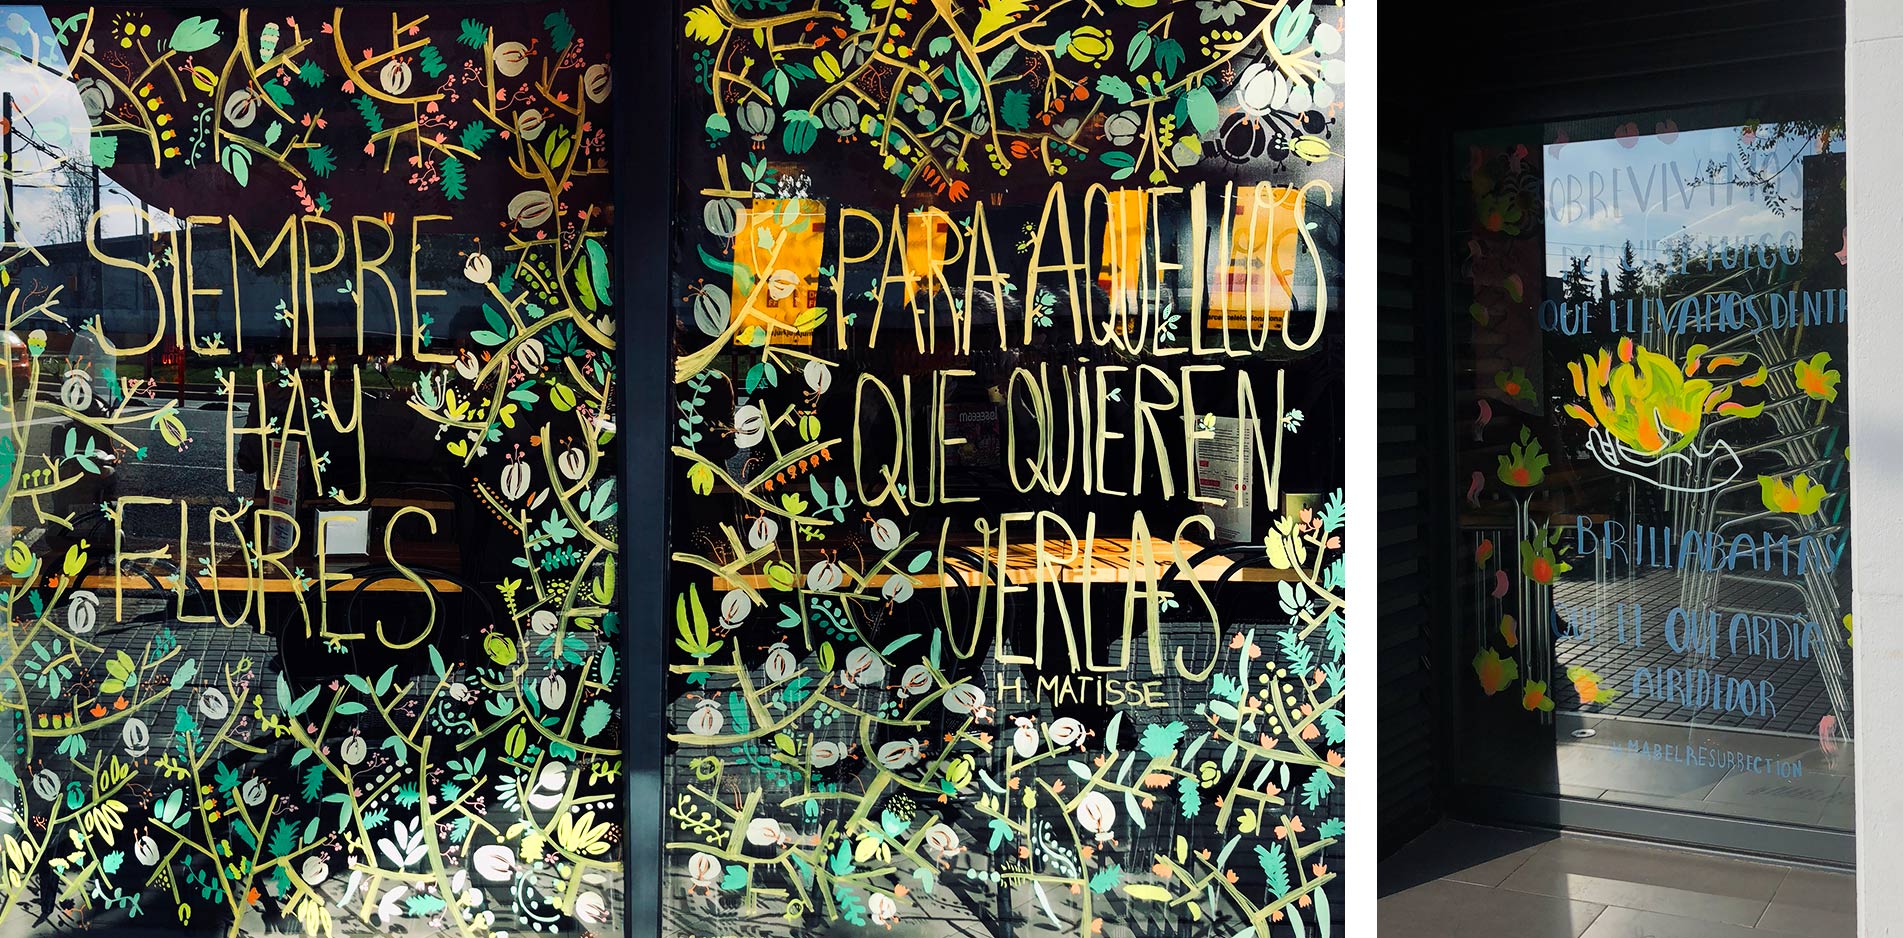 SIEMPRE
HAY
FLORES
PARA AQUELLOS
QUE QUIEREN
VERLAS
H. MATISSE
SOBREVIVIMOS
PORQUE EL FUEGO
QUE LLEVAMOS DENTR
BRILLABA MAS
QUE EL QUE ARDIA
ALREDEDOR
MABEL RESURRECTION